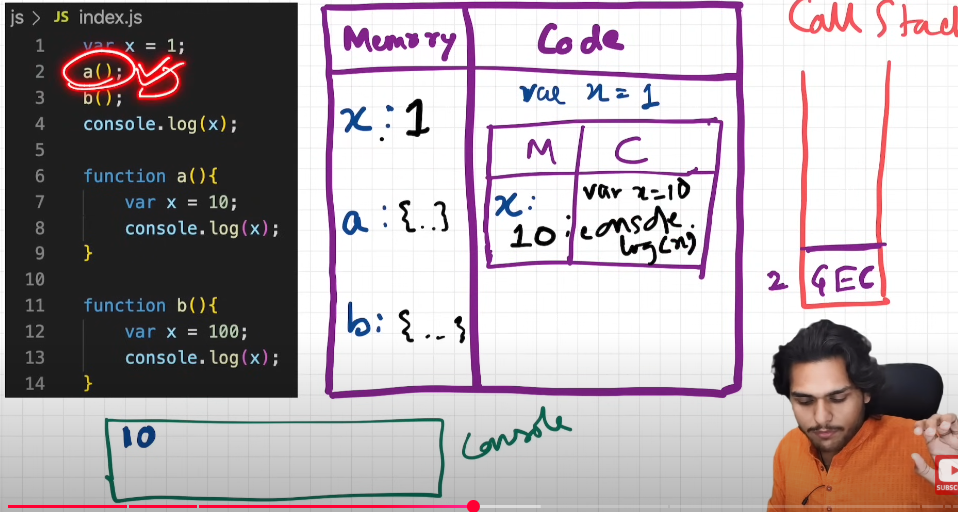 js > JS index.js
1 var x = 1;
2 a();
3 b();
4 console.log(x);
5
6 function a(){
7 var x = 10;
8 console.log(x);
9 }
10
11 function b(){
12 var x = 100;
13 console.log(x);
14 }
Memory
Code
x : 1
a : {..}
b : {...}
var x = 1
M
C
x:
10
var x=10
console.
log(x)
Call Stack
2 GEC
10
Console
SUBSC